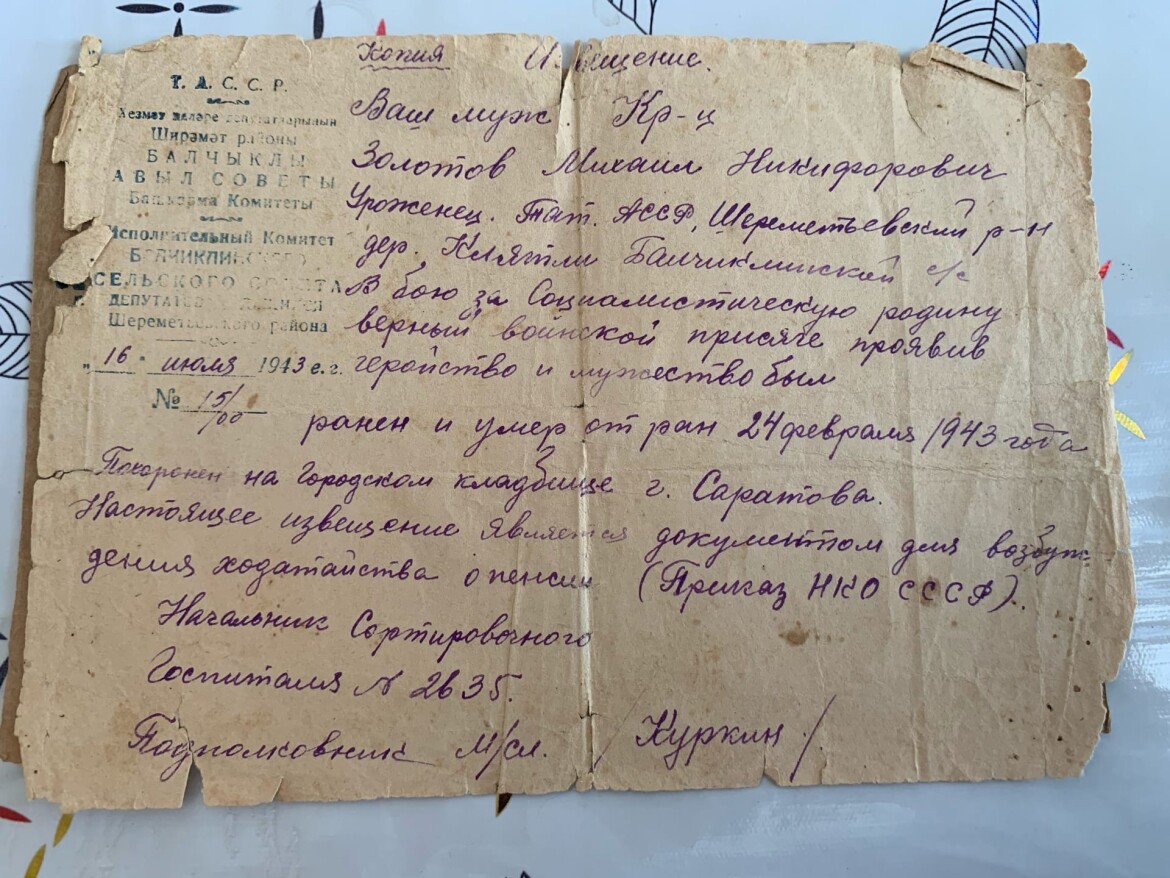 Копия Извещение.
Т. А. С. С. Р.
Хезмәт ияләре депутатларының
Ширәмәт районы
БАЛЧЫКЛЫ
АВЫЛ СОВЕТЫ
Башкарма Комитеты
Исполнительный Комитет
БАЛЧИКЛИНСКОГО
СЕЛЬСКОГО СОВЕТА
ДЕПУТАТОВ
Шереметьевского района
„16" июля 1943 е. г.
№ 15/100
Ваш муж Кр-ц
Золотов Михаил Никифорович
Уроженец. Тат. АССР, Шереметьевский р-н
дер. Клятли Балчиклинской с/с
В бою за Социалистическую родину
верный воинской присяге проявив
геройство и мужество был
ранен и умер от ран 24 февраля 1943 года
Похоронен на Городском кладбище г. Саратова.
Настоящее извещение является документом для возбуж-
дения ходатайства о пенсии (Приказ НКО СССР).
Начальник Сортировочного
Госпиталя № 2635.
Подполковник М/сл. /Куркин/